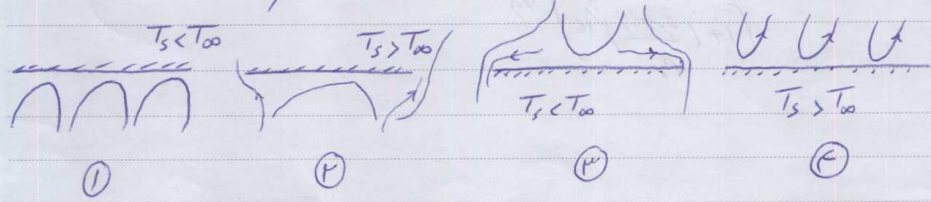 Ts < T∞
Ts > T∞
Ts < T∞
Ts > T∞
۱
۲
۳
۴